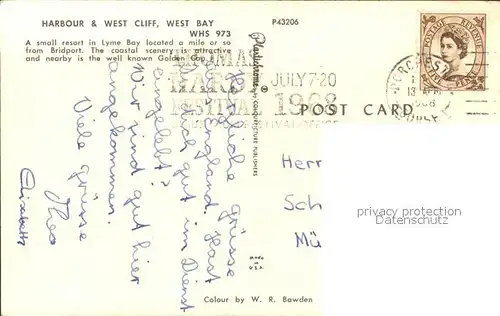 HARBOUR & WEST CLIFF, WEST BAY
WHS 973
P43206
A small resort in Lyme Bay located a mile or so
from Bridport. The coastal scenery is attractive
and nearby is the well known Golden Cap.
THOMAS
HARDY
FESTIVAL
JULY 7-20
1968
POST CARD
Plastichrome
BY COLOURPICTURE PUBLISHERS
MADE
IN
U.S.A.
POSTAGE REVENUE
Herzliche Grüsse
aus England. Hast
Du Dich gut im Dienst
eingelebt?
Wir sind gut hier
angekommen.
Viele Grüsse
Theo
Elisabeth
Herr
Sch
Mü
privacy protection
Datenschutz
Colour by W. R. Bawden